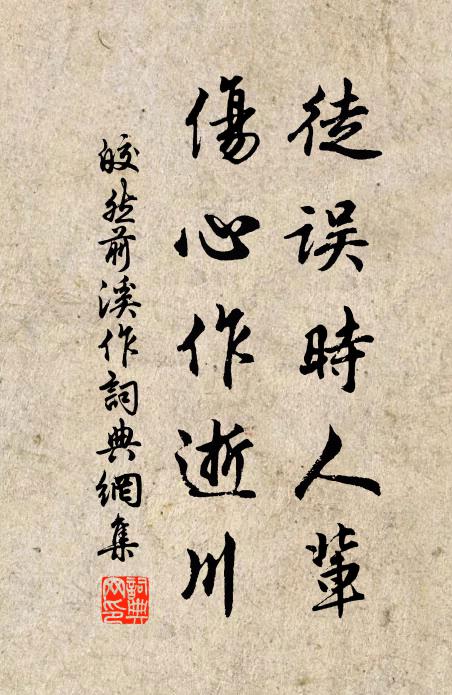 徒误時人輩
傷心作逝川
皎然前溪作詞典網集
詞典網印